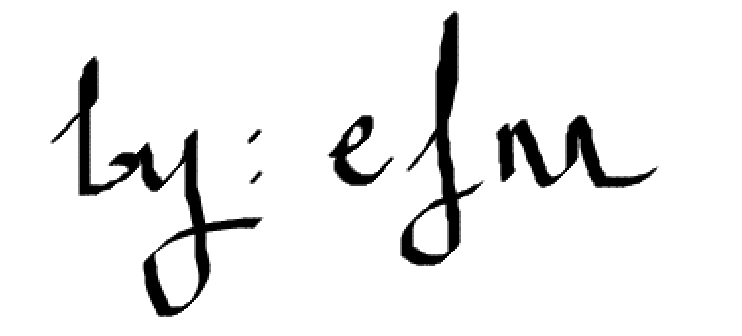 by: efm